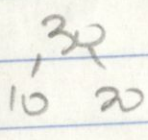 30
10 20